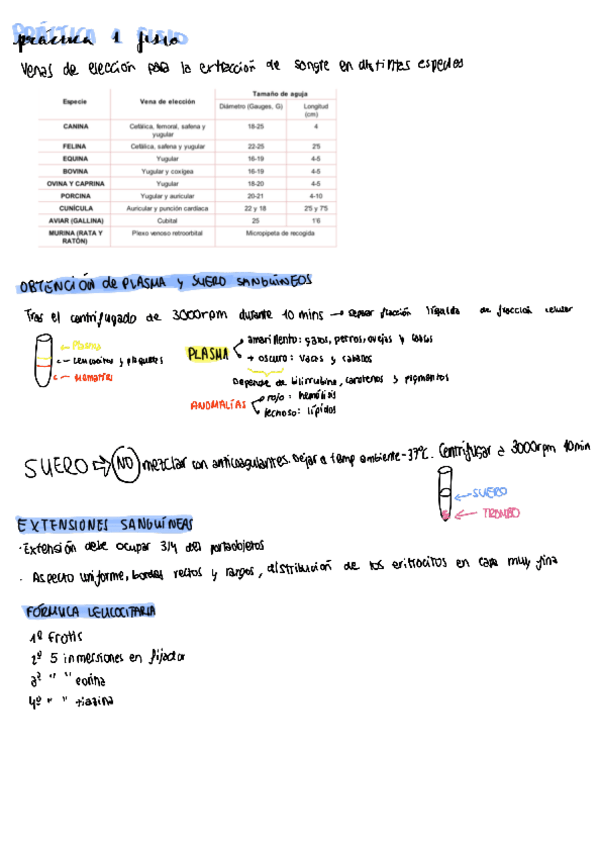 PRÁCTICA 1 FISIO
práctica 1 fisio
Venas de elección para la extracción de sangre en distintas especies
Especie Vena de elección Tamaño de aguja
Diámetro (Gauges, G) Longitud (cm)
CANINA Cefálica, femoral, safena y yugular 18-25 4
FELINA Cefálica, safena y yugular 22-25 2'5
EQUINA Yugular 16-19 4-5
BOVINA Yugular y coxígea 16-19 4-5
OVINA Y CAPRINA Yugular 18-20 4-5
PORCINA Yugular y auricular 20-21 4-10
CUNÍCULA Auricular y punción cardiaca 22 y 18 2'5 y 7'5
AVIAR (GALLINA) Cubital 25 1'6
MURINA (RATA Y RATÓN) Plexo venoso retroorbital Micropipeta de recogida
OBTENCIÓN de PLASMA y SUERO SANGUÍNEOS
Tras el centrifugado de 3000rpm durante 10 mins → separ fracción líquida de fracción celular
← Plasma
← Leucocitos y plaquetas
← Hematíes
PLASMA
amarillento: gatos, perros, ovejas y cabras
+ oscuro: vacas y caballos
Depende de bilirrubina, carotenos y pigmentos
ANOMALÍAS
rojo: hemólisis
lechoso: lípidos
SUERO ⇒ NO mezclar con anticoagulantes. Dejar a temp ambiente - 37ºC. Centrifugar a 3000rpm 10min
← SUERO
← TROMBO
EXTENSIONES SANGUÍNEAS
· Extensión debe ocupar 3/4 del portaobjetos
· Aspecto uniforme, bordes rectos y rasgos, distribución de los eritrocitos en capa muy fina
FÓRMULA LEUCOCITARIA
1º Frotis
2º 5 inmersiones en fijador
3º " " eosina
4º " " tiazina